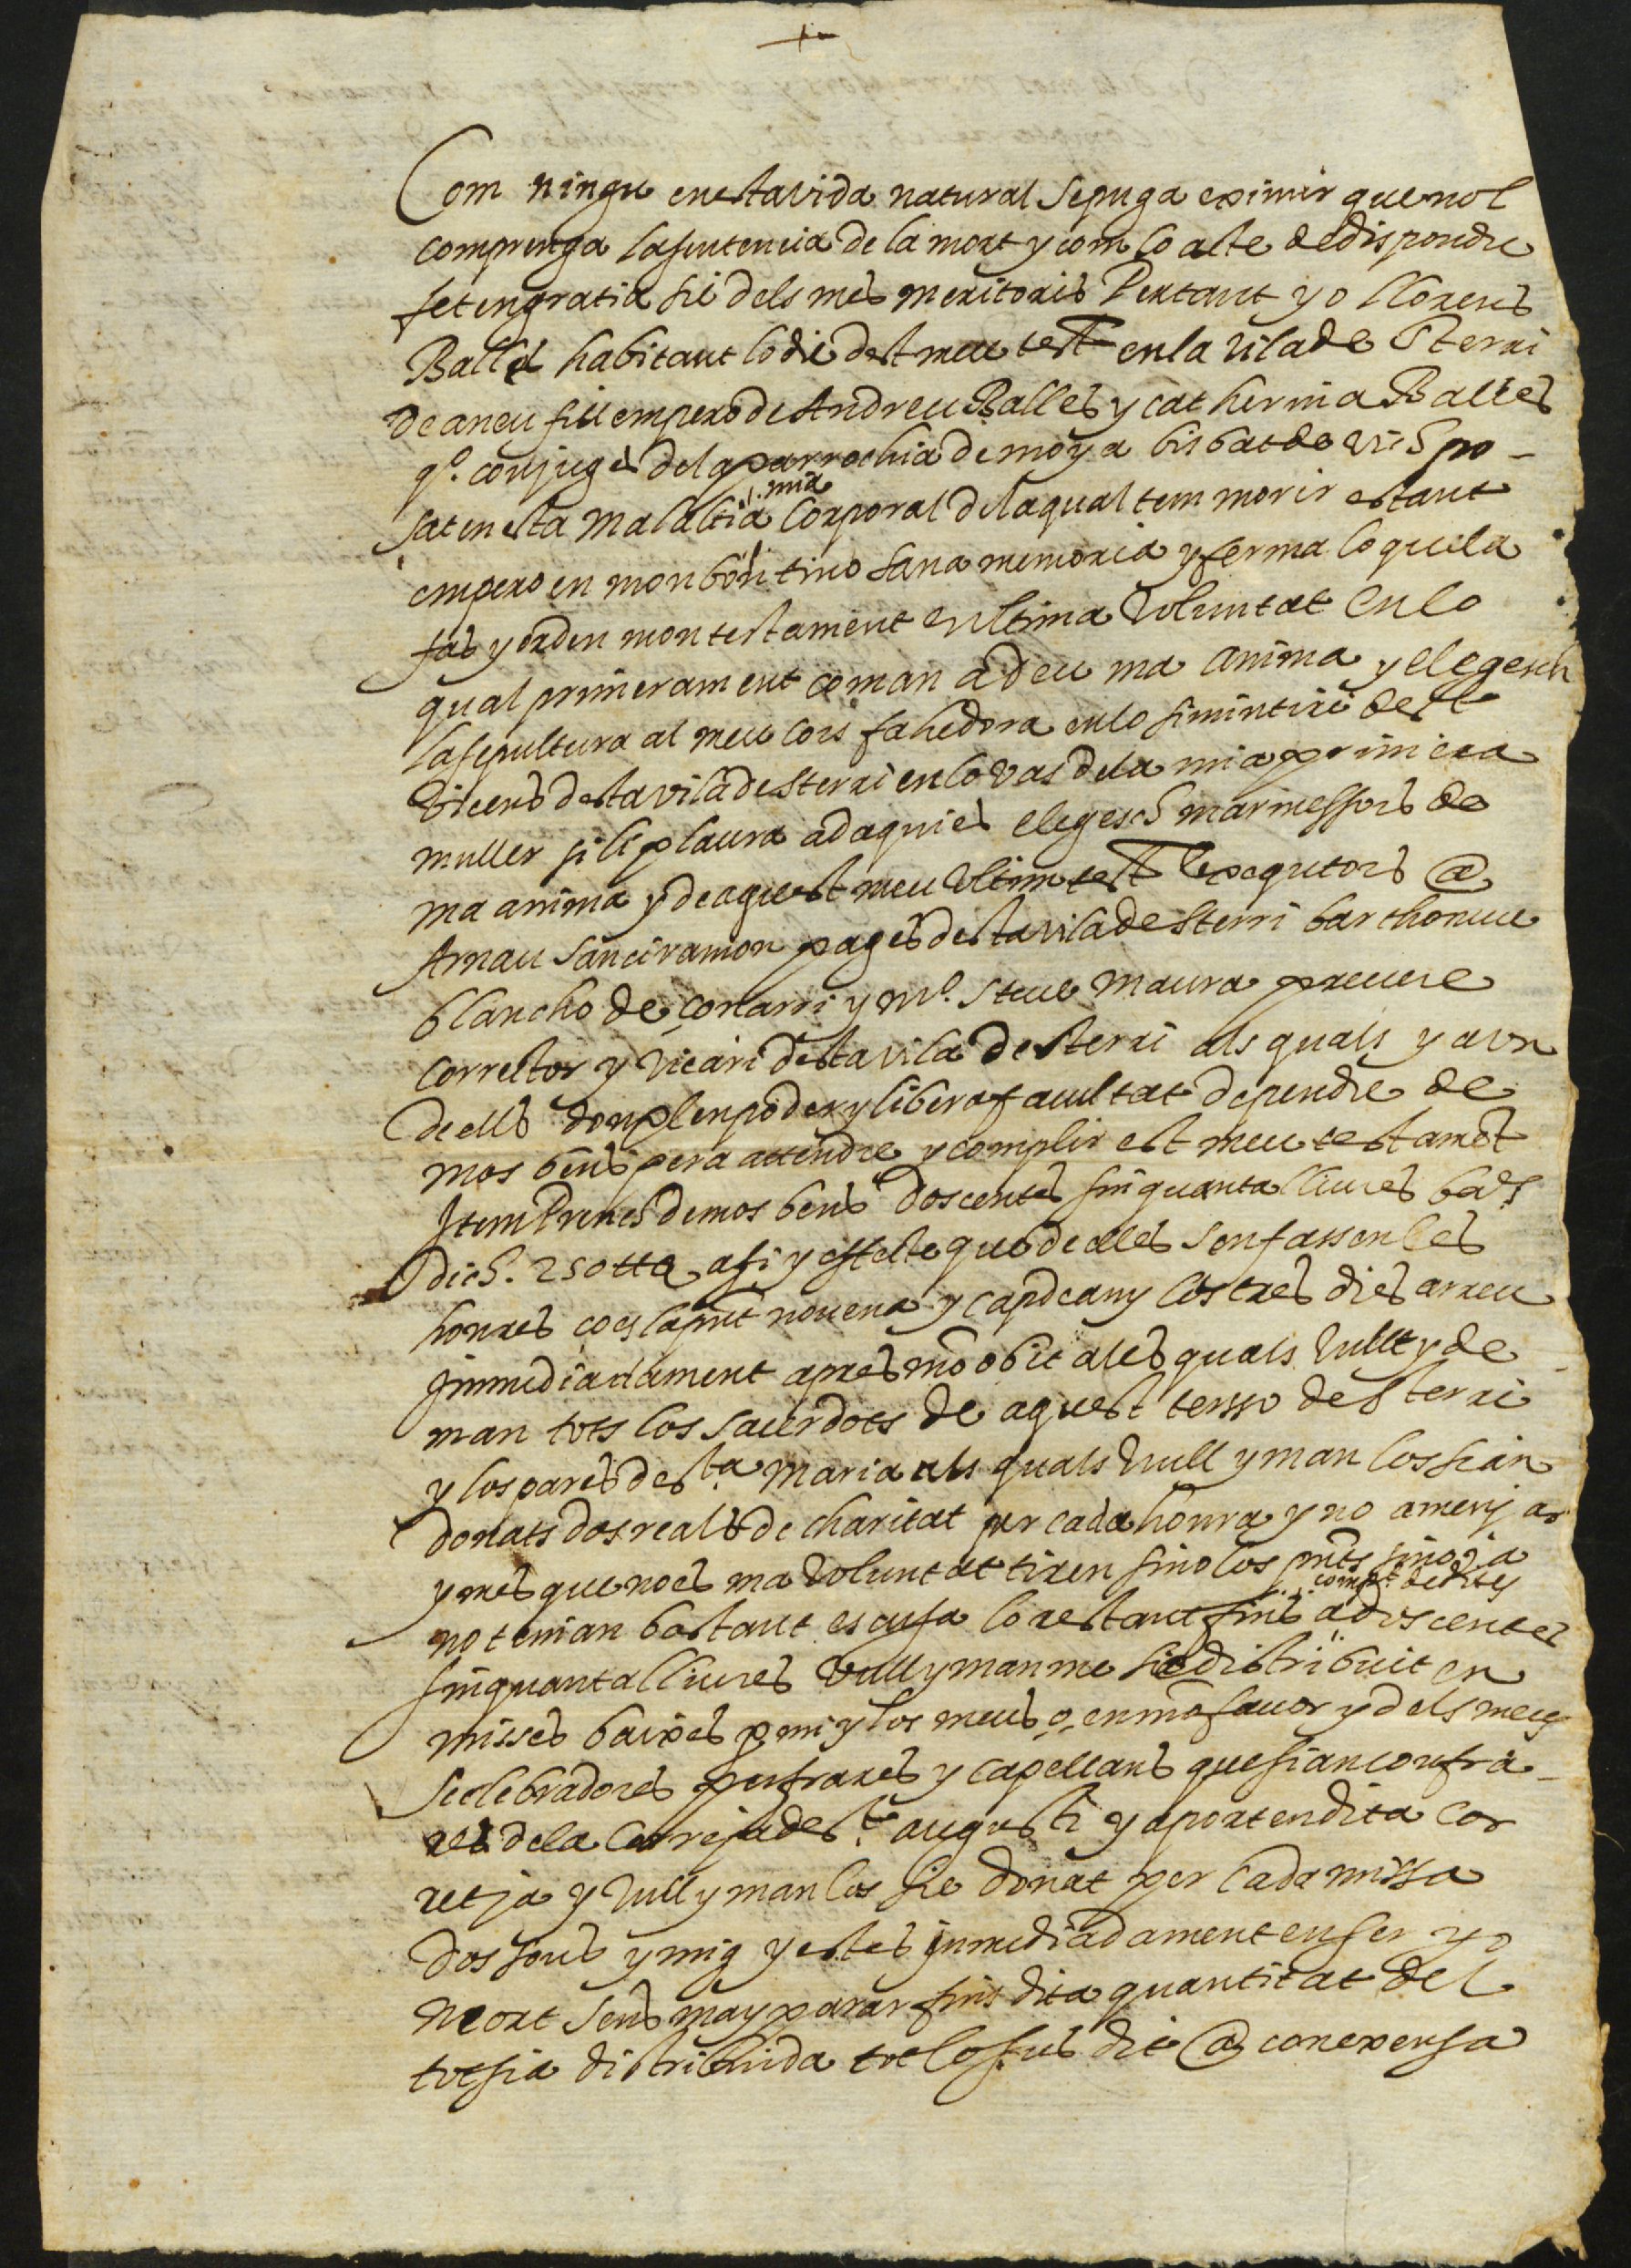 +
Com ningu en esta vida natural se puga eximir que nol
comprenga la sentencia de la mort y com lo acte de dispondre
fet en gratia sie dels mes meritoris Pertant yo llorens
Balles habitant lo die dest meu test en la vila de Sterri
de aneu fill empero de Andreu Balles y catherina Balles
qº. conjuges de la parrochia de moya bisbat de vich po-
sat en esta malaltia mia corporal de la qual tem morir estant
empero en mon bon sentino sana memoria y ferma loquela
fas y orden mon testament e ultima voluntat en lo
qual primerament coman a deu ma anima y elegesch
la sepultura al meu cors fahedora en lo simintiri de st
Vicens desta vila de sterri en lo vas de la mia primera
muller si li plaura ad aquies elegesch marmessors de
ma anima y de aquest meu ultim test exequutors @
Arnau Sanciramon pages desta vila de sterri barthomeu
blancho de sonarri y Mº. Steve Maura prevere
corrector y vicari desta vila de sterri als quals y a un
de ells don plen poder y libera facultat de pendre de
mos bens pera attendre y complir est meu testamet
Item prenes de mos bens doscentes sinquanta lliures bar.s
dich. 250 tt @ afi y effecte que de elles sen fassen les
honres ço es la put novena y cap de any los tres dies arreu
immediadament apres mo obit a les quals vull y de
man tots los sacerdots de aquest tersso de Sterri
y los pares de s.ta Maria als quals vull y man los sian
donats dos reals de charitat per cada honra y no a menjar
y mes que no es ma voluntat tiren sino los pnts sino ja
no tenian bastant escusa lo restant fins a compt. de dites doscentes
sinquanta lliures vull y man me sie distribuit en
misses baixes p mi y los meus o en mo favor y dels meus
selebradores per frares y capellans que sian confra-
res de la Corrija de s.t augusti y aporten dita cor
retja y vull y man los sie donat per cada missa
dos sous y mig y estes immediadament en ser yo
mort sens may parar fins dita quantitat del
tot sia distribuida tot lo sus dit @ con expensa